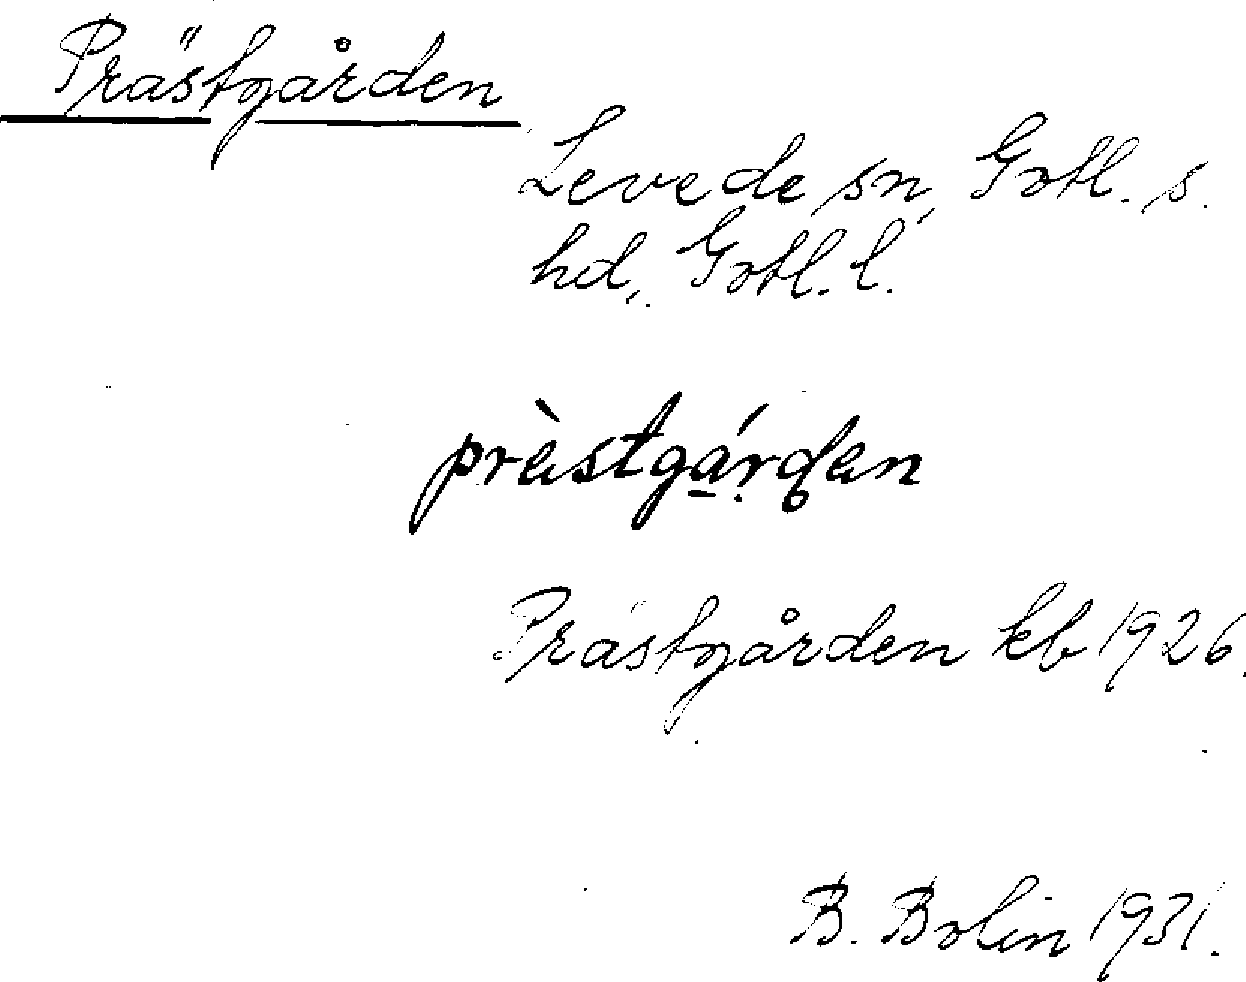 Prästgården
Levede sn, Gotl. s.
hd, Gotl. l.
prästgárdan
Prästgården kb 1926.
B. Bolin 1931.